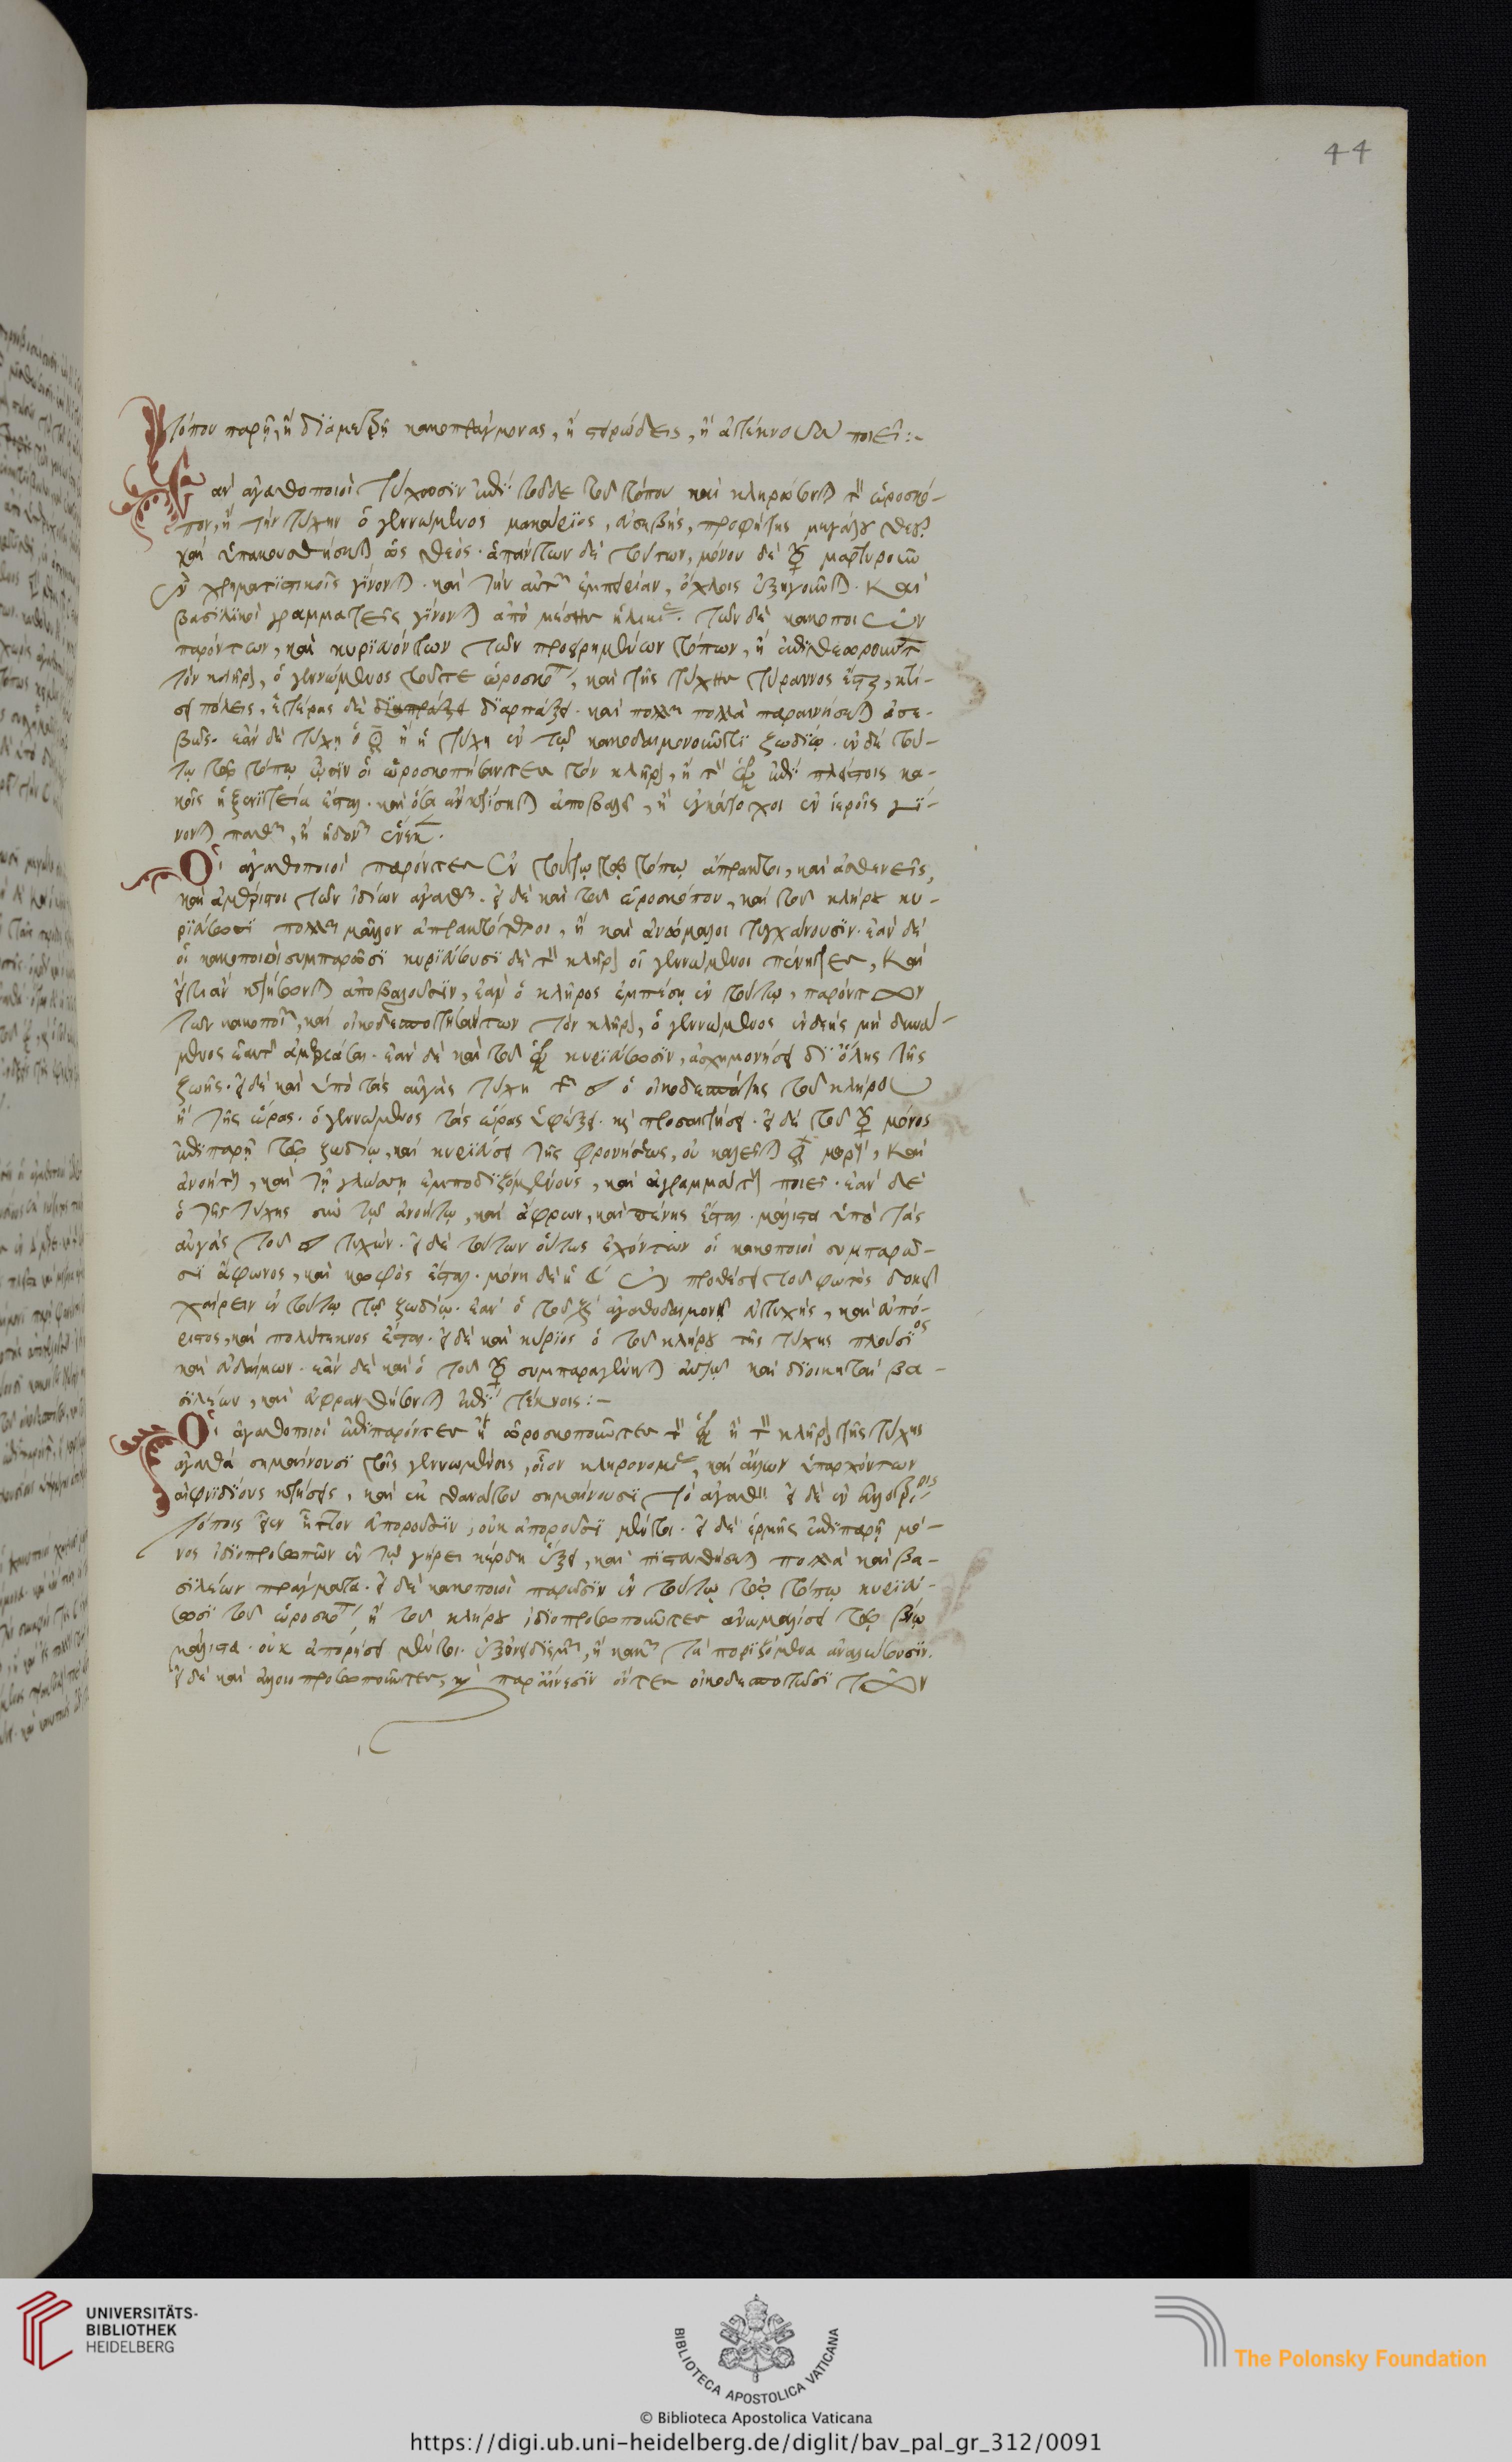 44
τόπου παρῇ, ἢ διαμετρῇ κακοπράγμονας, ἢ στειρώδεις, ἢ ἀτέκνους ποιεῖ:~
Εὰν ἀγαθοποιοὶ τύχουσιν ἐπὶ τοῦδε τοῦ τόπου καὶ κληρώσωνται τὸν ὡροσκό-
πον, ἢ τὴν τύχην ὁ γεννώμενος μακάριος, εὐσεβής, προφήτης μεγάλου θεοῦ
καὶ ἐπακουσθήσεται ὡς θεός. ἁπάντων δὲ τούτων, μόνου δὲ ☿ μαρτυροῦν
ἐν χρηματιστικοῖς γίνονται. καὶ τὴν αὐτῶν ἐμπειρίαν, ὄχλοις ἐξηγοῦνται. Καὶ
βασιλικοὶ γραμματεῖς γίνονται ἀπὸ μέσης ἡλικίας. τῶν δὲ κακοποιῶν
παρόντων, καὶ κυριευόντων τῶν προειρημένων τόπων, ἢ ἐπιθεωρούντων
τὸν κλῆρον, ὁ γεννώμενος τοῦτε ὡροσκόπου, καὶ τῆς τύχης τύραννος ἔσται, κτί-
σει πόλεις, ἑτέρας δὲ διαπράξει διαρπάξει. καὶ πολλὰ παραινήσεται ἀσε-
βῶς. ἐὰν δὲ τύχῃ ὁ ἢ ἡ τύχη ἐν τῷ κακοδαιμονοῦντι ζωδίῳ. ἐν δὲ τού-
τῳ τῷ τόπῳ ὦσιν οἱ ὡροσκοπήσαντες τὸν κλῆρον, ἢ τὸν ἐπὶ πλείστοις κα-
κοῖς ἡ ξενιτεία ἔσται. καὶ ὅσα ἂν κτίσηται ἀποβαλεῖ, ἢ ἐγκάτοχοι ἐν ἱεροῖς γί-
νονται παθῶν, ἢ ἡδονῶν ἕνεκα.
Οἱ ἀγαθοποιοὶ παρόντες ἐν τούτῳ τῷ τόπῳ ἄπρακτοι, καὶ ἀσθενεῖς,
καὶ ἀμέτοχοι τῶν ἰδίων ἀγαθῶν. εἰ δὲ καὶ τοῦ ὡροσκόπου, καὶ τοῦ κλήρου κυ-
ριεύσωσι πολλῷ μᾶλλον ἀπρακτότεροι, ἢ καὶ ἀνώμαλοι τυγχάνουσιν. ἐὰν δὲ
οἱ κακοποιοὶ συμπαρῶσι κυριεύσωσι δὲ τὸν κλῆρον οἱ γεννώμενοι πένητες, Καὶ
ὅτι ἂν κτήσωνται ἀποβαλοῦσιν, ἐὰν ὁ κλῆρος ἐμπέσῃ ἐν τούτῳ, παρόντων
τῶν κακοποιῶν, καὶ οἰκοδεσποτησάντων τὸν κλῆρον, ὁ γεννώμενος ἐνδεὴς μὴ δυνά-
μενος ἑαυτῷ ἀμφιάσαι. ἐὰν δὲ καὶ τοῦ κυριεύσωσιν, ἀσχημονήσει δι' ὅλης τῆς
ζωῆς. εἰ δὲ καὶ ὑπὸ τὰς αὐγὰς τύχῃ ὁ οἰκοδεσπότης τοῦ κλήρου
ἢ τῆς ὥρας. ὁ γεννώμενος τὰς ὥρας ὑφέξει. καὶ προσαιτήσει. εἰ δὲ τοῦ ☿ μόνος
ἐπιπαρῇ τῷ ζωδίῳ, καὶ κυριεύσει τῆς φρονήσεως, οὐ καλεῖται μωρούς, Καὶ
ἀνοήτους, καὶ τῇ γλώσσῃ ἐμποδιζομένους, καὶ ἀγραμμάτους ποιεῖ. ἐὰν δὲ
ὁ τῆς τύχης σὺν τῷ ἀνοήτῳ, καὶ ἄφρων, καὶ πένης ἔσται. μάλιστα ὑπὸ τὰς
αὐγὰς τοῦ τυχών. εἰ δὲ τούτων οὕτως ἐχόντων οἱ κακοποιοὶ συμπαρῶ-
σι ἄφωνος, καὶ κωφὸς ἔσται. μόνη δὲ ἡ ☾ ἐν προθέσει τοῦ φωτὸς δοκεῖ
χαίρειν ἐν τούτῳ τῷ ζωδίῳ. ἐὰν ὁ τοῦ ἀγαθοδαιμονεῖ εὐτυχής, καὶ εὐπό-
ριστος, καὶ πολύτεκνος ἔσται. εἰ δὲ καὶ κύριος ὁ τοῦ κλήρου τῆς τύχης πλούσιος
καὶ εὐδαίμων. ἐὰν δὲ καὶ ὁ τοῦ ☿ συμπαραγένηται αὐτῷ καὶ διοικηταὶ βα-
σιλέων, καὶ εὐφρανθήσεται ἐπὶ τέκνοις:~
Οἱ ἀγαθοποιοὶ ἐπιπαρόντες ἢ ὡροσκοποῦντες τὸν ἢ τὸν κλῆρον τῆς τύχης
ἀγαθὰ σημαίνουσι τοῖς γεννωμένοις, οἷον κληρονομίας, καὶ ἄλλων ὑπαρχόντων
αἰφνιδίους κτήσεις, καὶ ἐκ θανάτου σημαίνουσι τὸ ἀγαθὸν εἰ δὲ ἐν ἀλλοτρίοις
τόποις ὦσιν ἧττον εὐποροῦσιν, οὐκ ἀποροῦσι μέντοι. εἰ δὲ ἑρμῆς ἐπιπαρῇ μό-
νος ἰδιοπροσωπῶν ἐν τῷ γήρει κέρδη ἕξει, καὶ πιστευθήσεται πολλὰ καὶ βα-
σιλέων πράγματα. εἰ δὲ κακοποιοὶ παρῶσιν ἐν τούτῳ τῷ τόπῳ κυριεύ-
σωσι τοῦ ὡροσκόπου, ἢ τοῦ κλήρου ἰδιοπροσωποῦντες ἀνωμαλίσει τῷ βίῳ
μάλιστα. οὐκ ἀπορήσει μέντοι. ἐξ ὀνειδισμῶν, ἢ κακῶν τὰ ποριζόμενα ἀναλώσουσιν.
εἰ δὲ καὶ ἀλλοιοπροσωποῦντες, καὶ παραίνεσιν ὄντες οἰκοδεσποτῶσι τῶν
UNIVERSITÄTS-
BIBLIOTHEK
HEIDELBERG
BIBLIOTECA APOSTOLICA VATICANA
The Polonsky Foundation
© Biblioteca Apostolica Vaticana
https://digi.ub.uni-heidelberg.de/diglit/bav_pal_gr_312/0091